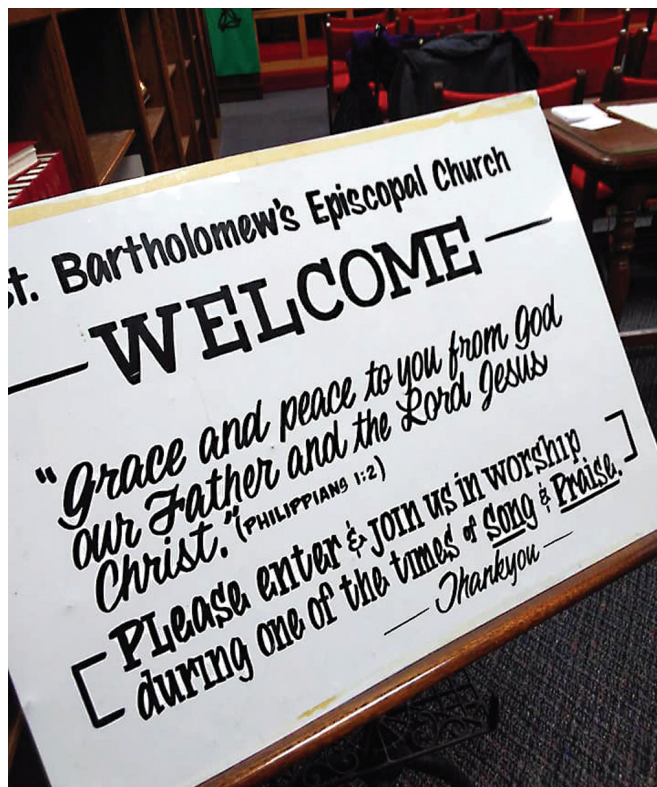 St. Bartholomew's Episcopal Church
— WELCOME —
"Grace and peace to you from God
our Father and the Lord Jesus
Christ." (PHILIPPIANS 1:2)
[PLease enter & join us in worship]
during one of the times of Song & Praise.
— Thankyou —